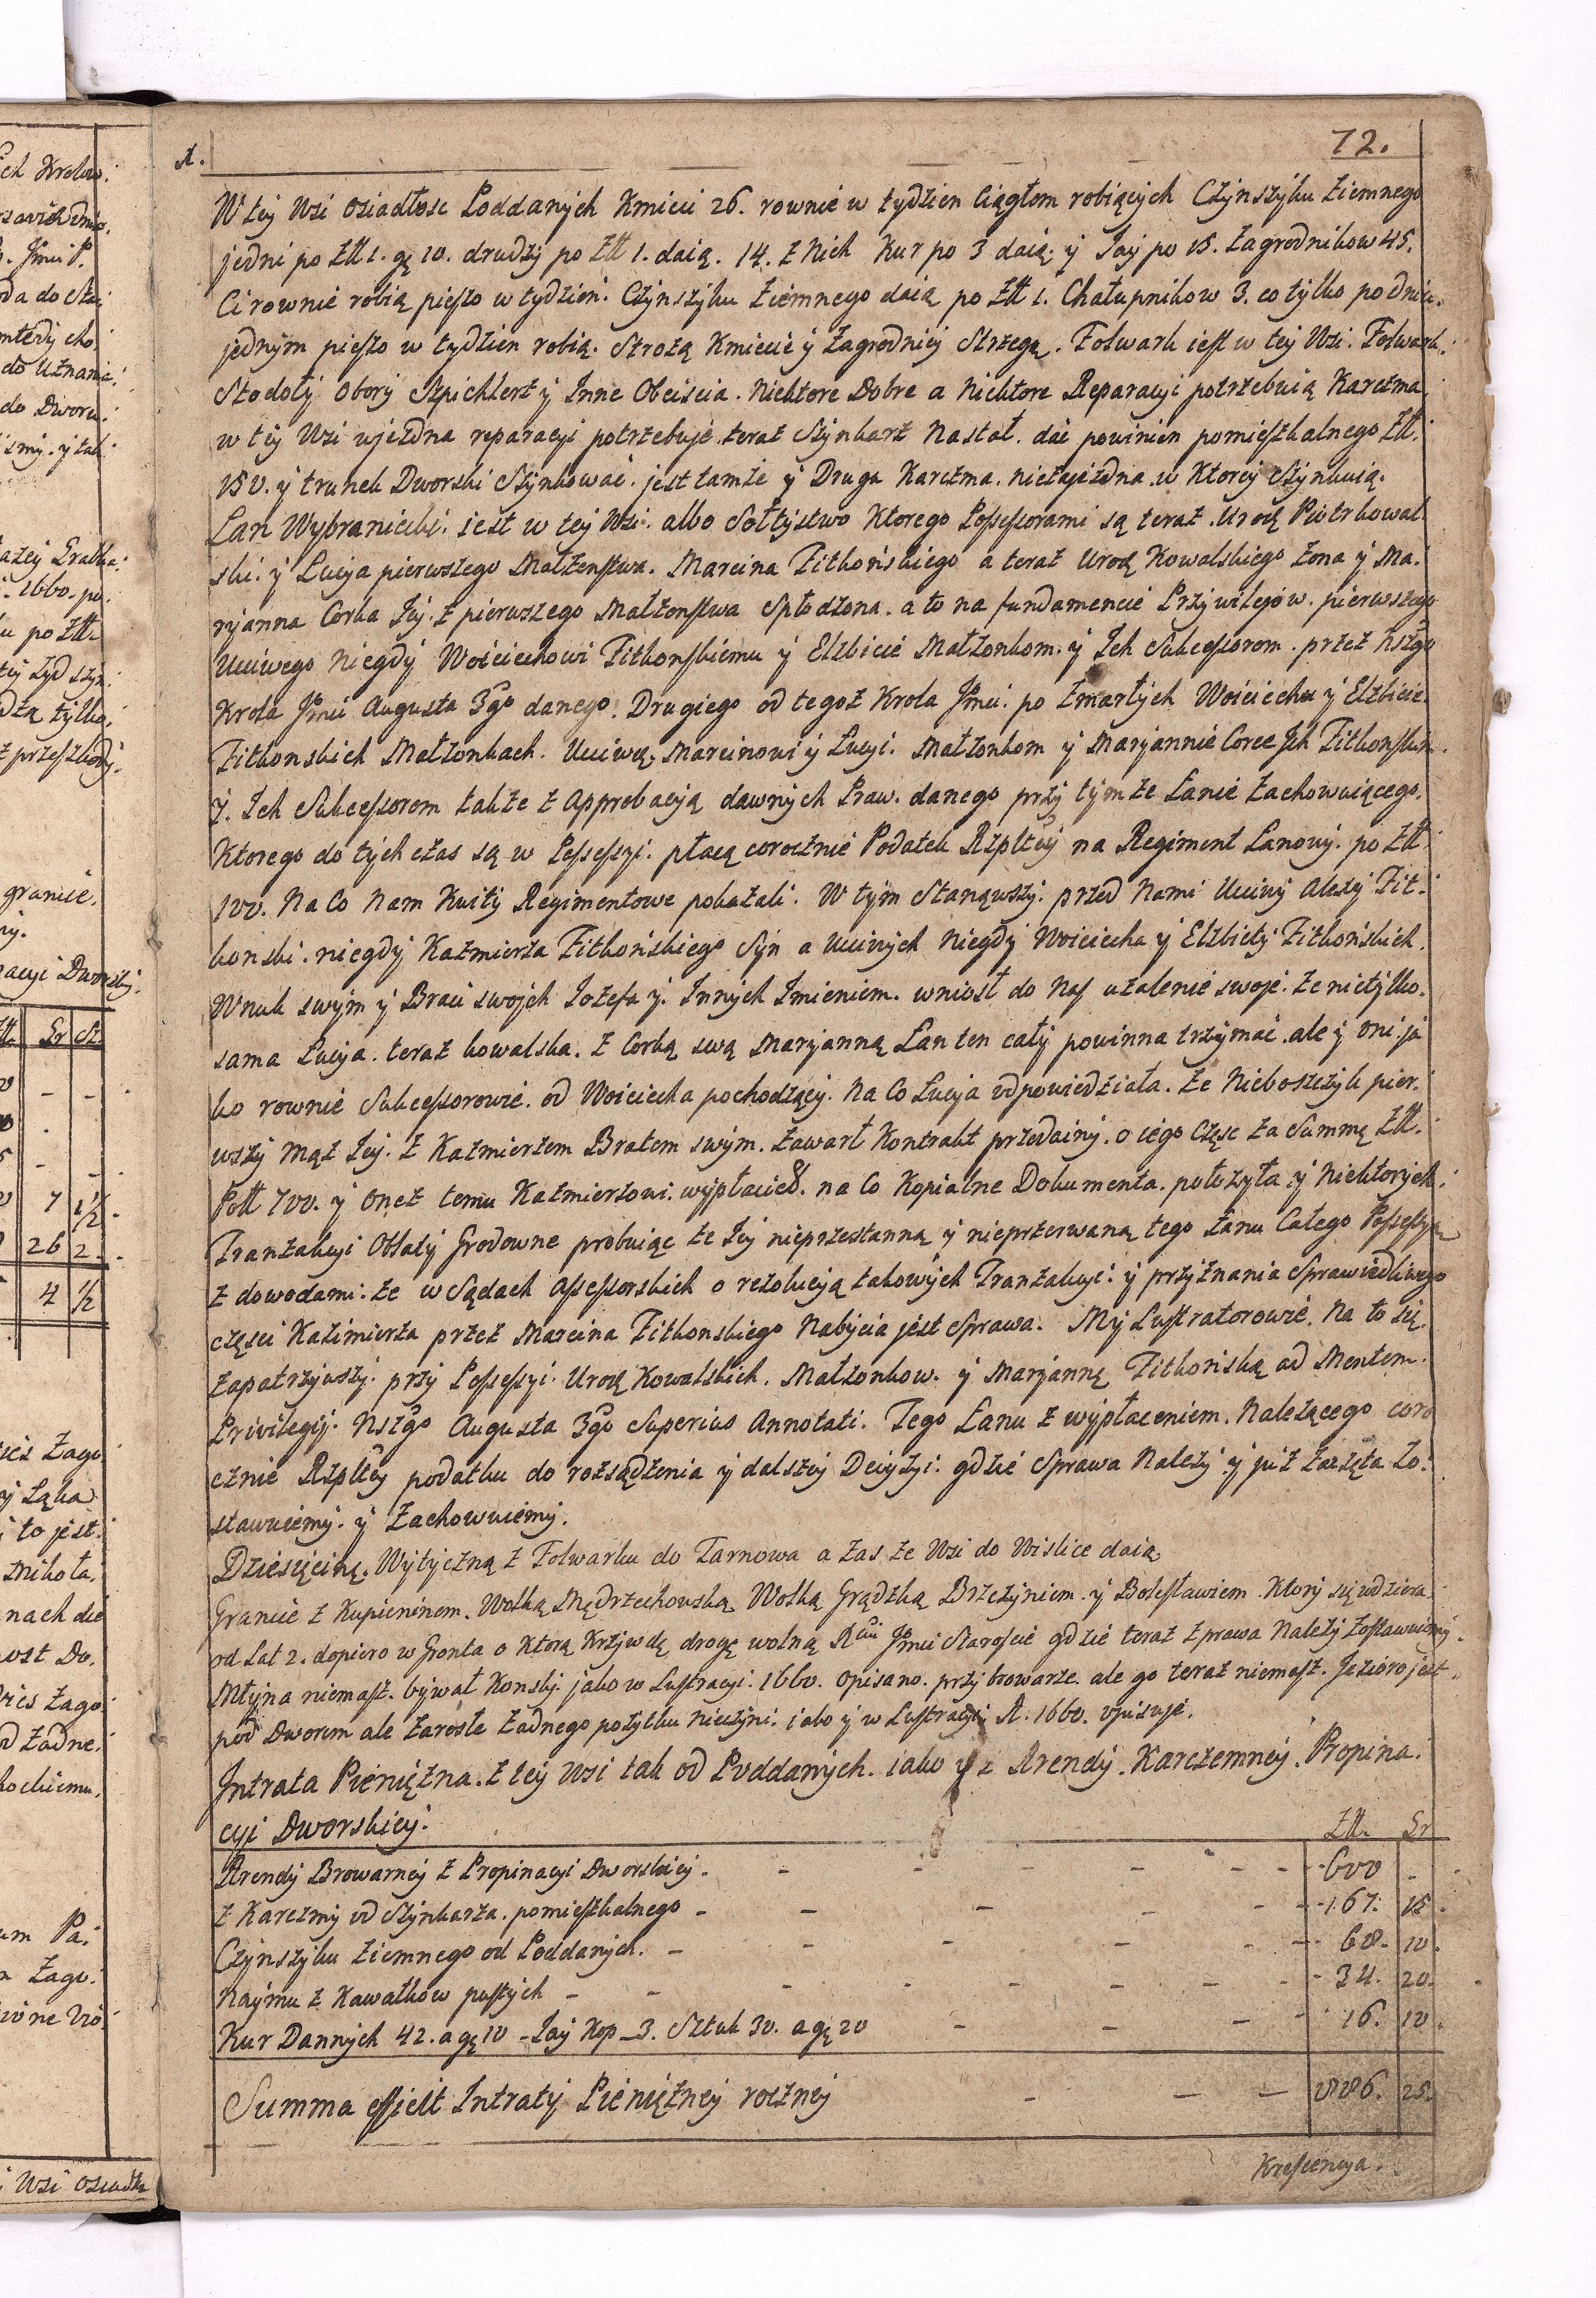 72.
A.
W tey Wsi osiadłosc Poddanych Kmieci 26. rownie w tydzien Ciągłem robiących Czynszyku ziemnego
jedni po Złł 1. gę 10. drudzy po Złł 1. daią. 14. z Nich Kur po 3 daią. y Jay po 15. Zagrodnikow 45.
Ci rownie robią pieszo w tydzień. Czynszyku Ziemnego daią po Złł 1. Chałupnikow 3. co tylko po dniu.
jednym pieszo w tydzien robią. Strożą Kmiecie y Zagrodnicy Strzegą. Folwark iest w tey Wsi. Folwark.
Stodoły Obory Szpichlerz y Inne Obeiscia. Niektore Dobre a Niektore Reparacyi potrzebuią Karczma.
w tey Wsi wjezdna reparacyi potrzebuje. teraz Szynkarz Nastał. dać powinien pomieszkalnego Złł.
150. y trunek Dworski Szynkować. jest tamże y Druga Karczma. niezajezdna. w Ktorey Szynkuią.
Łan Wybraniecki. iest w tey Wsi. albo Sołtystwo Ktorego Possessorami są teraz. Urodę Piotr kowal
ski. y Łucya pierwszego Małżenstwa. Marcina Fitkońskiego a teraz Urodę Kowalskiego żona y Ma.
ryanna Corka Jey. z pierwszego Małżenstwa Spłodzona. a to na fundamencie Przywilegów. pierwszego
Uciwego Niegdy Woiciechowi Fitkonskiemu y Elzbicie Małżonkom. y Ich Sukcessorom. przez Nszgo
Krola Jmci Augusta 3go danego. Drugiego od tegoż Krola Jmci. po zmarłych Woiciechu y Elzbicie.
Fitkonskich Małżonkach. Uciwą. Marcinowi y Łucyi. Małżonkom y Maryannie Corce Ich Fitkonskim.
y. Ich Sukcessorom także z Approbacyją dawnych Praw. danego przy tymże Łanie Zachowuiącego.
Ktorego do tych czas są w Possessyi. płacą corocznie Podatek Rzpltey na Regiment Łanowy. po Złł
100. Na Co Nam Kwity Regimentowe pokazali. W tym Stanąwszy. przed Nami Uciwy Alexy Fit.
konski. niegdy Kazmierza Fitkońskiego Syn a Uciwych Niegdy Woiciecha y Elzbiety Fitkońskich.
Wnuk swym y Braci swojch Jozefa y. Innych Imieniem. wniosł do Nas użalenie swoje. że nietylko.
sama Łucya. teraz kowalska. z Corką swą Maryanną Łan ten cały powinna trzymać. ale y oni ja
ko rownie Sukcessorowie. od Woiciecha pochodzący. Na Co Łucya odpowiedziała. że Nieboszczyk pier.
wszy mąż Jey. z Kazmierzem Bratem swym. zawarł Kontrakt przedainy. o iego Częsc za Summę Złł.
Poll 700. y onez temu Kazmierzowi. wypłacieł. na Co Kopialne Dokumenta. położyła y Niektorych.
Tranzakcyi Oblaty Grodowne probuiąc że Jey nieprzestanną y nieprzerwaną tego Łanu Całego Possessyą
z dowodami: że w Sądach Assessorskich o rezolucyją takowych Tranzakcyi. y przyznania Sprawiedliwego
części Kazimierza przez Marcina Fitkonskiego Nabycia jest Sprawa. My Lustratorowie. Na to się.
zapatrzywszy. przy Possessyi. Urodę Kowalskich. Małżonkow. y Maryannę Fitkońską ad Mentem.
Privilegij. Nszgo Augusta 3go Superius Annotati. Tego Łanu z wypłaceniem. Należącego coro
cznie Rzpltey podatku do rozsądzenia y dalszey Decyzyi. gdzie Sprawa Należy y już zaczęta zo.
stawuiemy. y Zachowuiemy.
Dziesięcinę. Wytyczną z Folwarku do Tarnowa a zas ze Wsi do Wislice daią.
Granice z Kupieninem. Wolką Mędrzechowską Wolką Grądzką Brzezyniem. y Bolesławiem. Ktory się wdziera.
od Lat 2. dopiero w Gronta o Ktorą Krzywdę drogę wolną Rcui Jmci Staroscie gdzie teraz z prawa Należy zostawuiemy.
Młyna niemasz. bywał Konsky. jako w Lustracyi. 1660. opisano. przy browarze. ale go teraz niemasz. Jezioro jest.
pod Dworem ale zarosłe zadnego pożytku nieczyni. iako y w Lustracyi A. 1660. opisuje.
Intrata Pieniężna. z tey Wsi tak od Poddanych. iako y z Arendy. Karczemney. Propina.
cyi Dworskiey.
Złł. Gr
Arendy Browarney z Propinacyi Dworskiey. - 600 -
z Karczmy od Szynkarza. pomieszkalnego - 167. 15.
Czynszyku ziemnego od Poddanych. - 68. 10.
Naymu z Kawałkow pustych - 34. 20.
Kur Dannych 42. a gę 10 - Jay Kop - 3. Sztuk 30. a gę 20 - 16. 10.
Summa efficit Intraty Pieniężney roczney - 886. 25.
Krescencya.